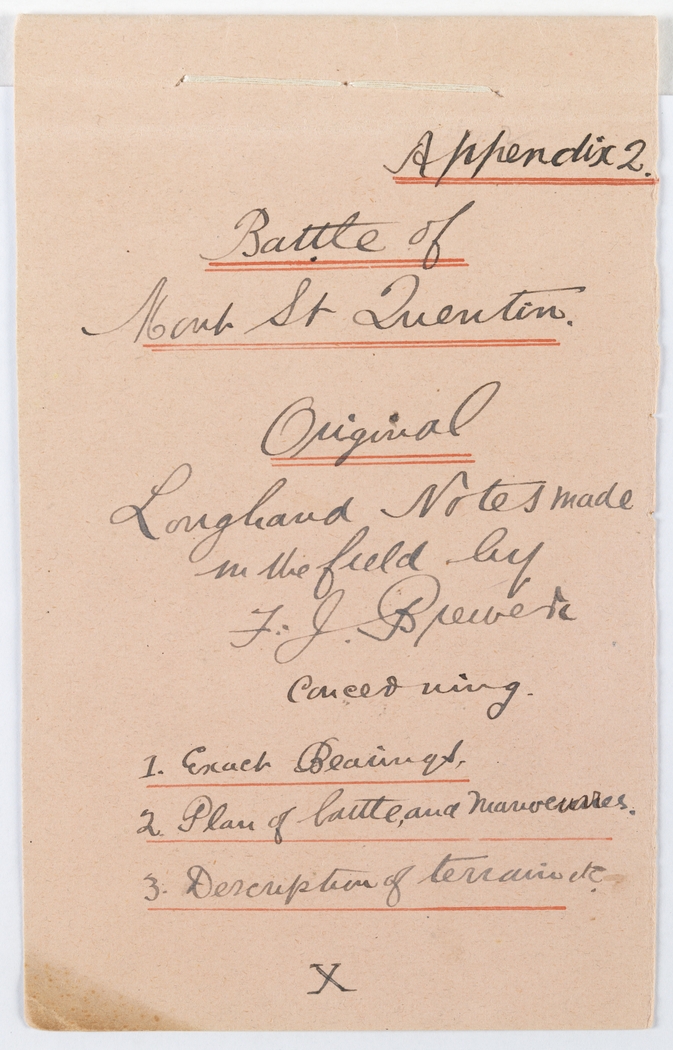 Appendix 2.
Battle of
Mont St Quentin.
Original
Longhand Notes made
in the field by
F. J. Brewer
Concerning.
1. Exact Bearings,
2. Plan of battle, and Manoeuvres.
3. Description of terrain etc.
X